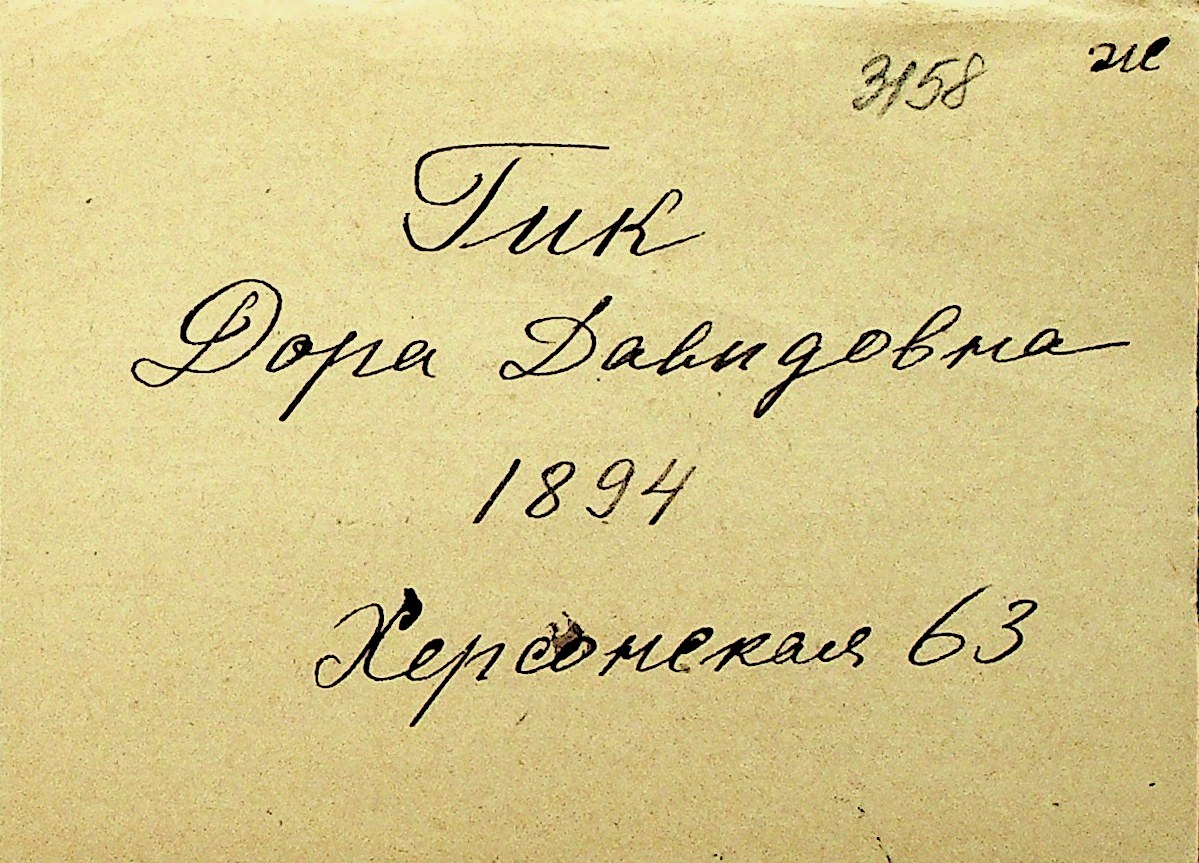 3158 ж
Гик
Дора Давидовна
1894
Херсонская 63